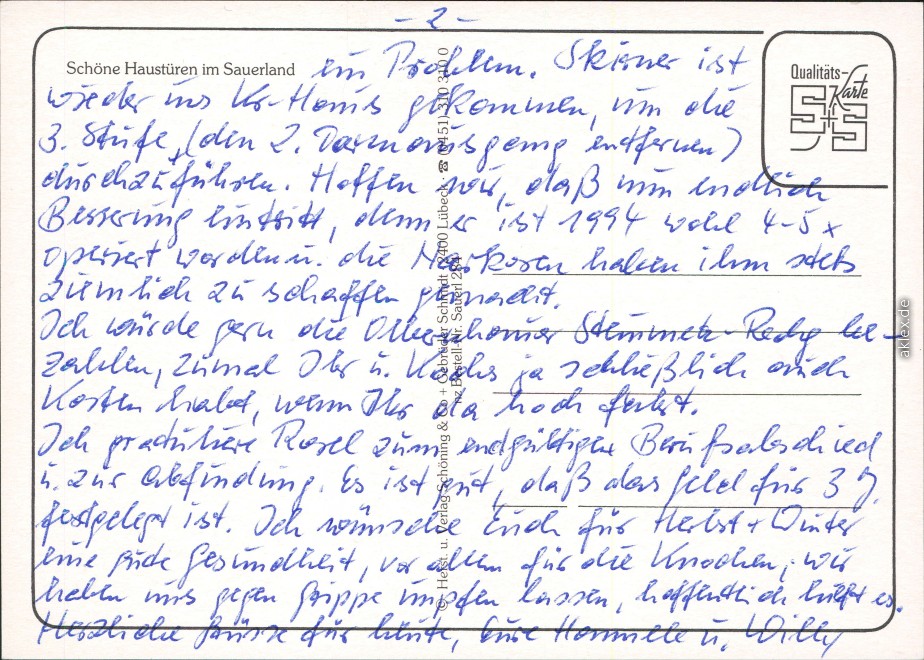 - 2 -
Schöne Haustüren im Sauerland
ein Problem. Skisner ist
wieder ins Kr-Haus gekommen, um die
3. Stufe, (den 2. Darmausgang entfernen)
durchzuführen. Hoffen wir, daß nun endlich
Besserung eintritt, denn er ist 1994 wohl 4-5x
operiert worden u. die Narkosen haben ihm stets
ziemlich zu schaffen gemacht.
Ich würde gern die Steinmetz-Rechg be-
zahlen, zumal Ihr u. Kochs ja schließlich auch
Kosten habt, wenn Ihr da hoch fahrt.
Ich gratuliere Rosel zum endgültigen Berufsabschied
u. zur Abfindung. Es ist gut, daß das Geld für 3 J.
festgelegt ist. Ich wünsche Euch für Herbst + Winter
eine gute Gesundheit, vor allem für die Knochen; wir
haben uns gegen Grippe impfen lassen, hoffentlich hilft es.
Herzliche Grüsse für heute, Eure Hannele u. Willy
Qualitäts-
Karte
S+S
© Herst. u. Verlag Schöning & Co + Gebrüder Schmidt · 2400 Lübeck · ☎ (0451) 310 310
nz Bestell-Nr. Sauerl 284
akpool.de